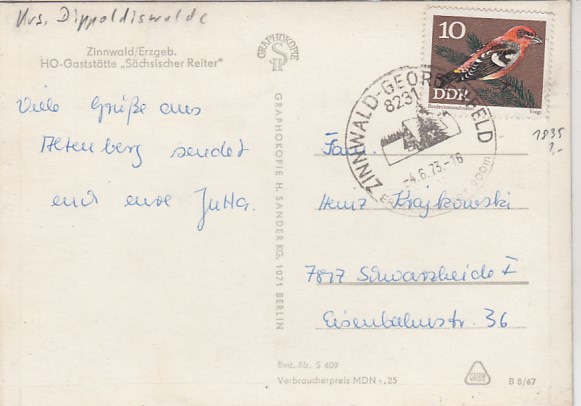 Krs. Dippoldiswalde
Zinnwald/Erzgeb.
HO-Gaststätte „Sächsischer Reiter"
Viele Grüße aus
Altenberg sendet
euch eure Jutta.
GRAPHOKOPIE
GRAPHOKOPIE H. SANDER KG, 1071 BERLIN
10
DDR
ZINNWALD-GEORGENFELD
8231
-4.6.73.-16
900m
1835
1,-
Fam.
Heinz Krajkowski
7817 Schwarzheide I
Eisenbahnstr. 36
Best.-Nr. S 609
Verbraucherpreis MDN -,25
B 8/67